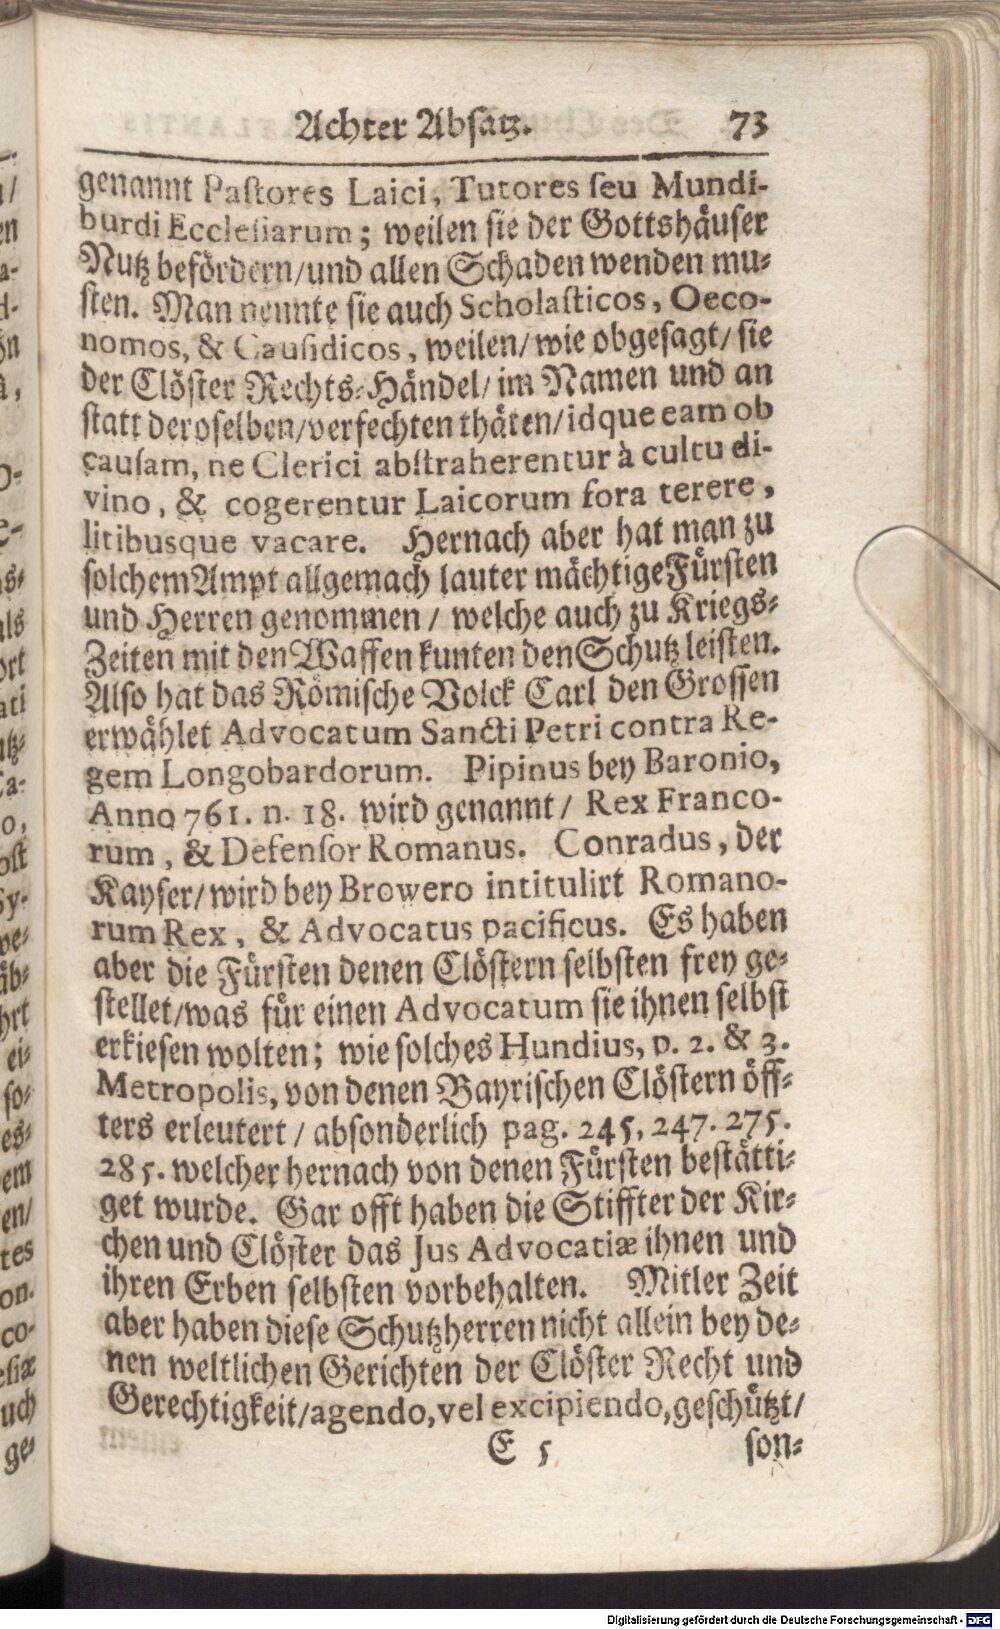 Achter Absatz. 73
genannt Pastores Laici, Tutores seu Mundi-
burdi Ecclesiarum; weilen sie der Gottshäuser
Nutz befördern/und allen Schaden wenden mu-
sten. Man nennte sie auch Scholasticos, Oeco-
nomos, & Causidicos, weilen/ wie obgesagt/ sie
der Clöster Rechts-Händel/ im Namen und an
statt deroselben/verfechten thäten/idque eam ob
causam, ne Clerici abstraherentur à cultu di-
vino, & cogerentur Laicorum fora terere,
litibusque vacare. Hernach aber hat man zu
solchem Ampt allgemach lauter mächtige Fürsten
und Herren genommen / welche auch zu Kriegs-
Zeiten mit den Waffen kunten den Schutz leisten.
Also hat das Römische Volck Carl den Grossen
erwählet Advocatum Sancti Petri contra Re-
gem Longobardorum. Pipinus bey Baronio,
Anno 761. n. 18. wird genannt / Rex Franco-
rum, & Defensor Romanus. Conradus, der
Kayser/ wird bey Browero intitulirt Romano-
rum Rex, & Advocatus pacificus. Es haben
aber die Fürsten denen Clöstern selbsten frey ge-
stellet/was für einen Advocatum sie ihnen selbst
erkiesen wolten; wie solches Hundius, p. 2. & 3.
Metropolis, von denen Bayrischen Clöstern öff-
ters erleutert / absonderlich pag. 245, 247. 275.
285. welcher hernach von denen Fürsten bestätti-
get wurde. Gar offt haben die Stiffter der Kir-
chen und Clöster das Jus Advocatiæ ihnen und
ihren Erben selbsten vorbehalten. Mitler Zeit
aber haben diese Schutzherren nicht allein bey de-
nen weltlichen Gerichten der Clöster Recht und
Gerechtigkeit/agendo, vel excipiendo, geschützt/
E 5 son-
Digitalisierung gefördert durch die Deutsche Forschungsgemeinschaft - DFG